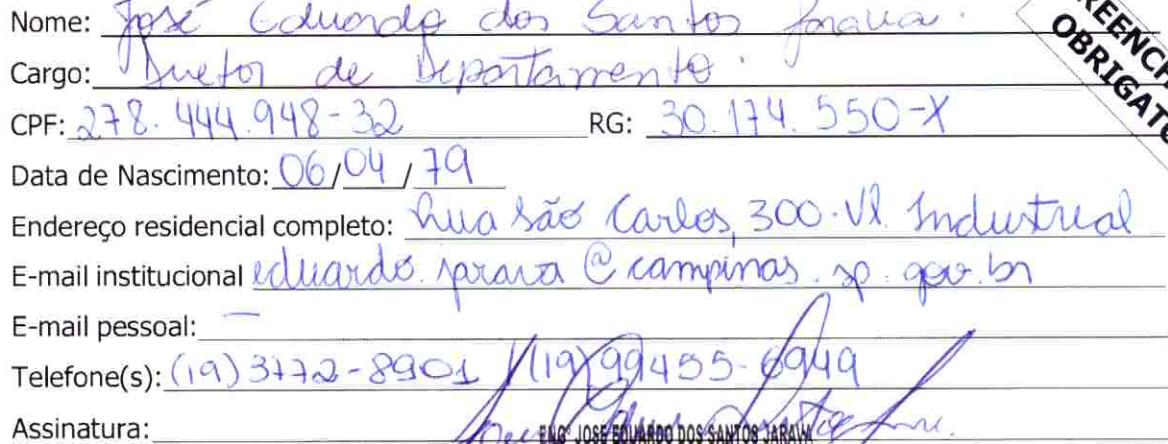 Nome: José Eduardo dos Santos Jarava.
Cargo: Diretor de Departamento.
CPF: 278.444.948-32 RG: 30.174.550-X
Data de Nascimento: 06/04/79
Endereço residencial completo: Rua São Carlos, 300. Vl. Industrial
E-mail institucional eduardo.jarava@campinas.sp.gov.br
E-mail pessoal: —
Telefone(s): (19) 3772-8901 / (19) 99455-6949
Assinatura:
ENGº JOSÉ EDUARDO DOS SANTOS JARAVA